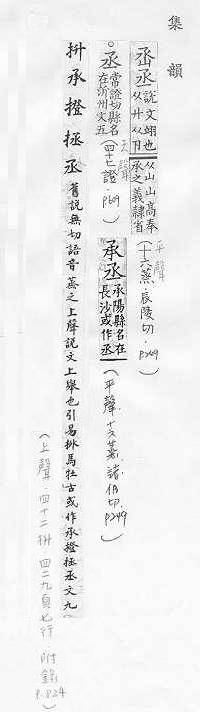 集韻
丞丞說文翊也从廾从卪从山山高奉承之義隸省
(平聲.十六蒸.辰陵切.P249)
丞常證切縣名在沂州文五
(去聲四十七證.P609)
承丞承陽縣名在長沙或作丞
(平聲.十六蒸.諸仍切.P249)
抍承撜拯丞舊說無切語音蒸之上聲說文上舉也引易抍馬牡吉或作承撜拯丞文九
(上聲.四十二拯.四二九頁七行 附錄P.824)